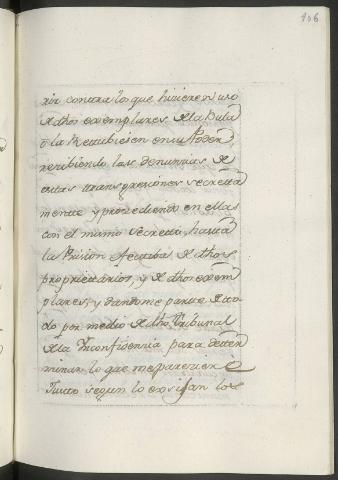 106
rir contra los que hizieren uso
de dhos exemplares de la Bula
ò la Retubiesen en su Poder,
recibiendo las denuncias de
estas transgresiones secreta
mente y procediendo en ellas
con el mismo secreto, hasta
la Prision efectiba de dhos
propietarios, y de dhos exem
plares, y dandome parte de to
do por medio de dho Tribunal
de la Inconfidencia para deter
minar lo que me pareciere
Justo segun lo exsijan los